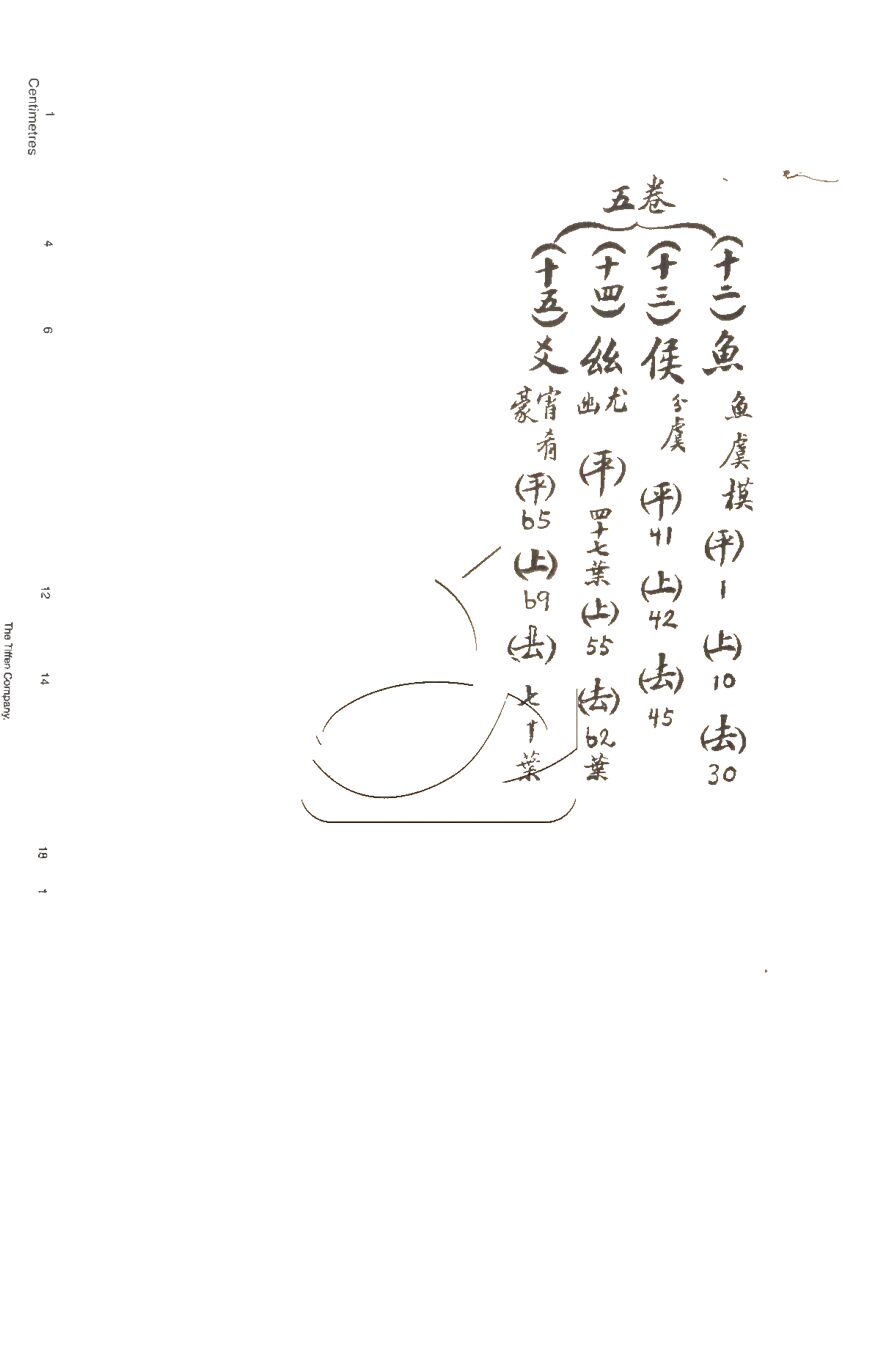 五卷
(十二)魚 魚虞模 (平) 1 (上) 10 (去) 30
(十三)侯 分虞 (平) 41 (上) 42 (去) 45
(十四)𢆶 尤幽 (平) 四十七葉 (上) 55 (去) 62葉
(十五)爻 宵肴豪 (平) 65 (上) 69 (去) 七十葉
Centimetres
1
4
6
12
14
18
1
The Tiffen Company.